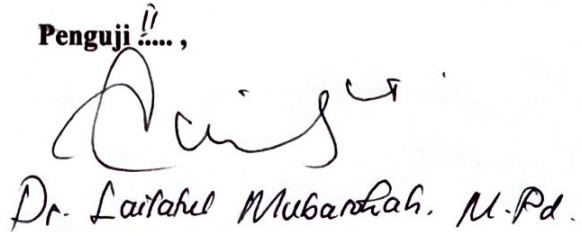 Penguji !! ..... ,
Dr. Lailatul Mubarokah. M.Pd.